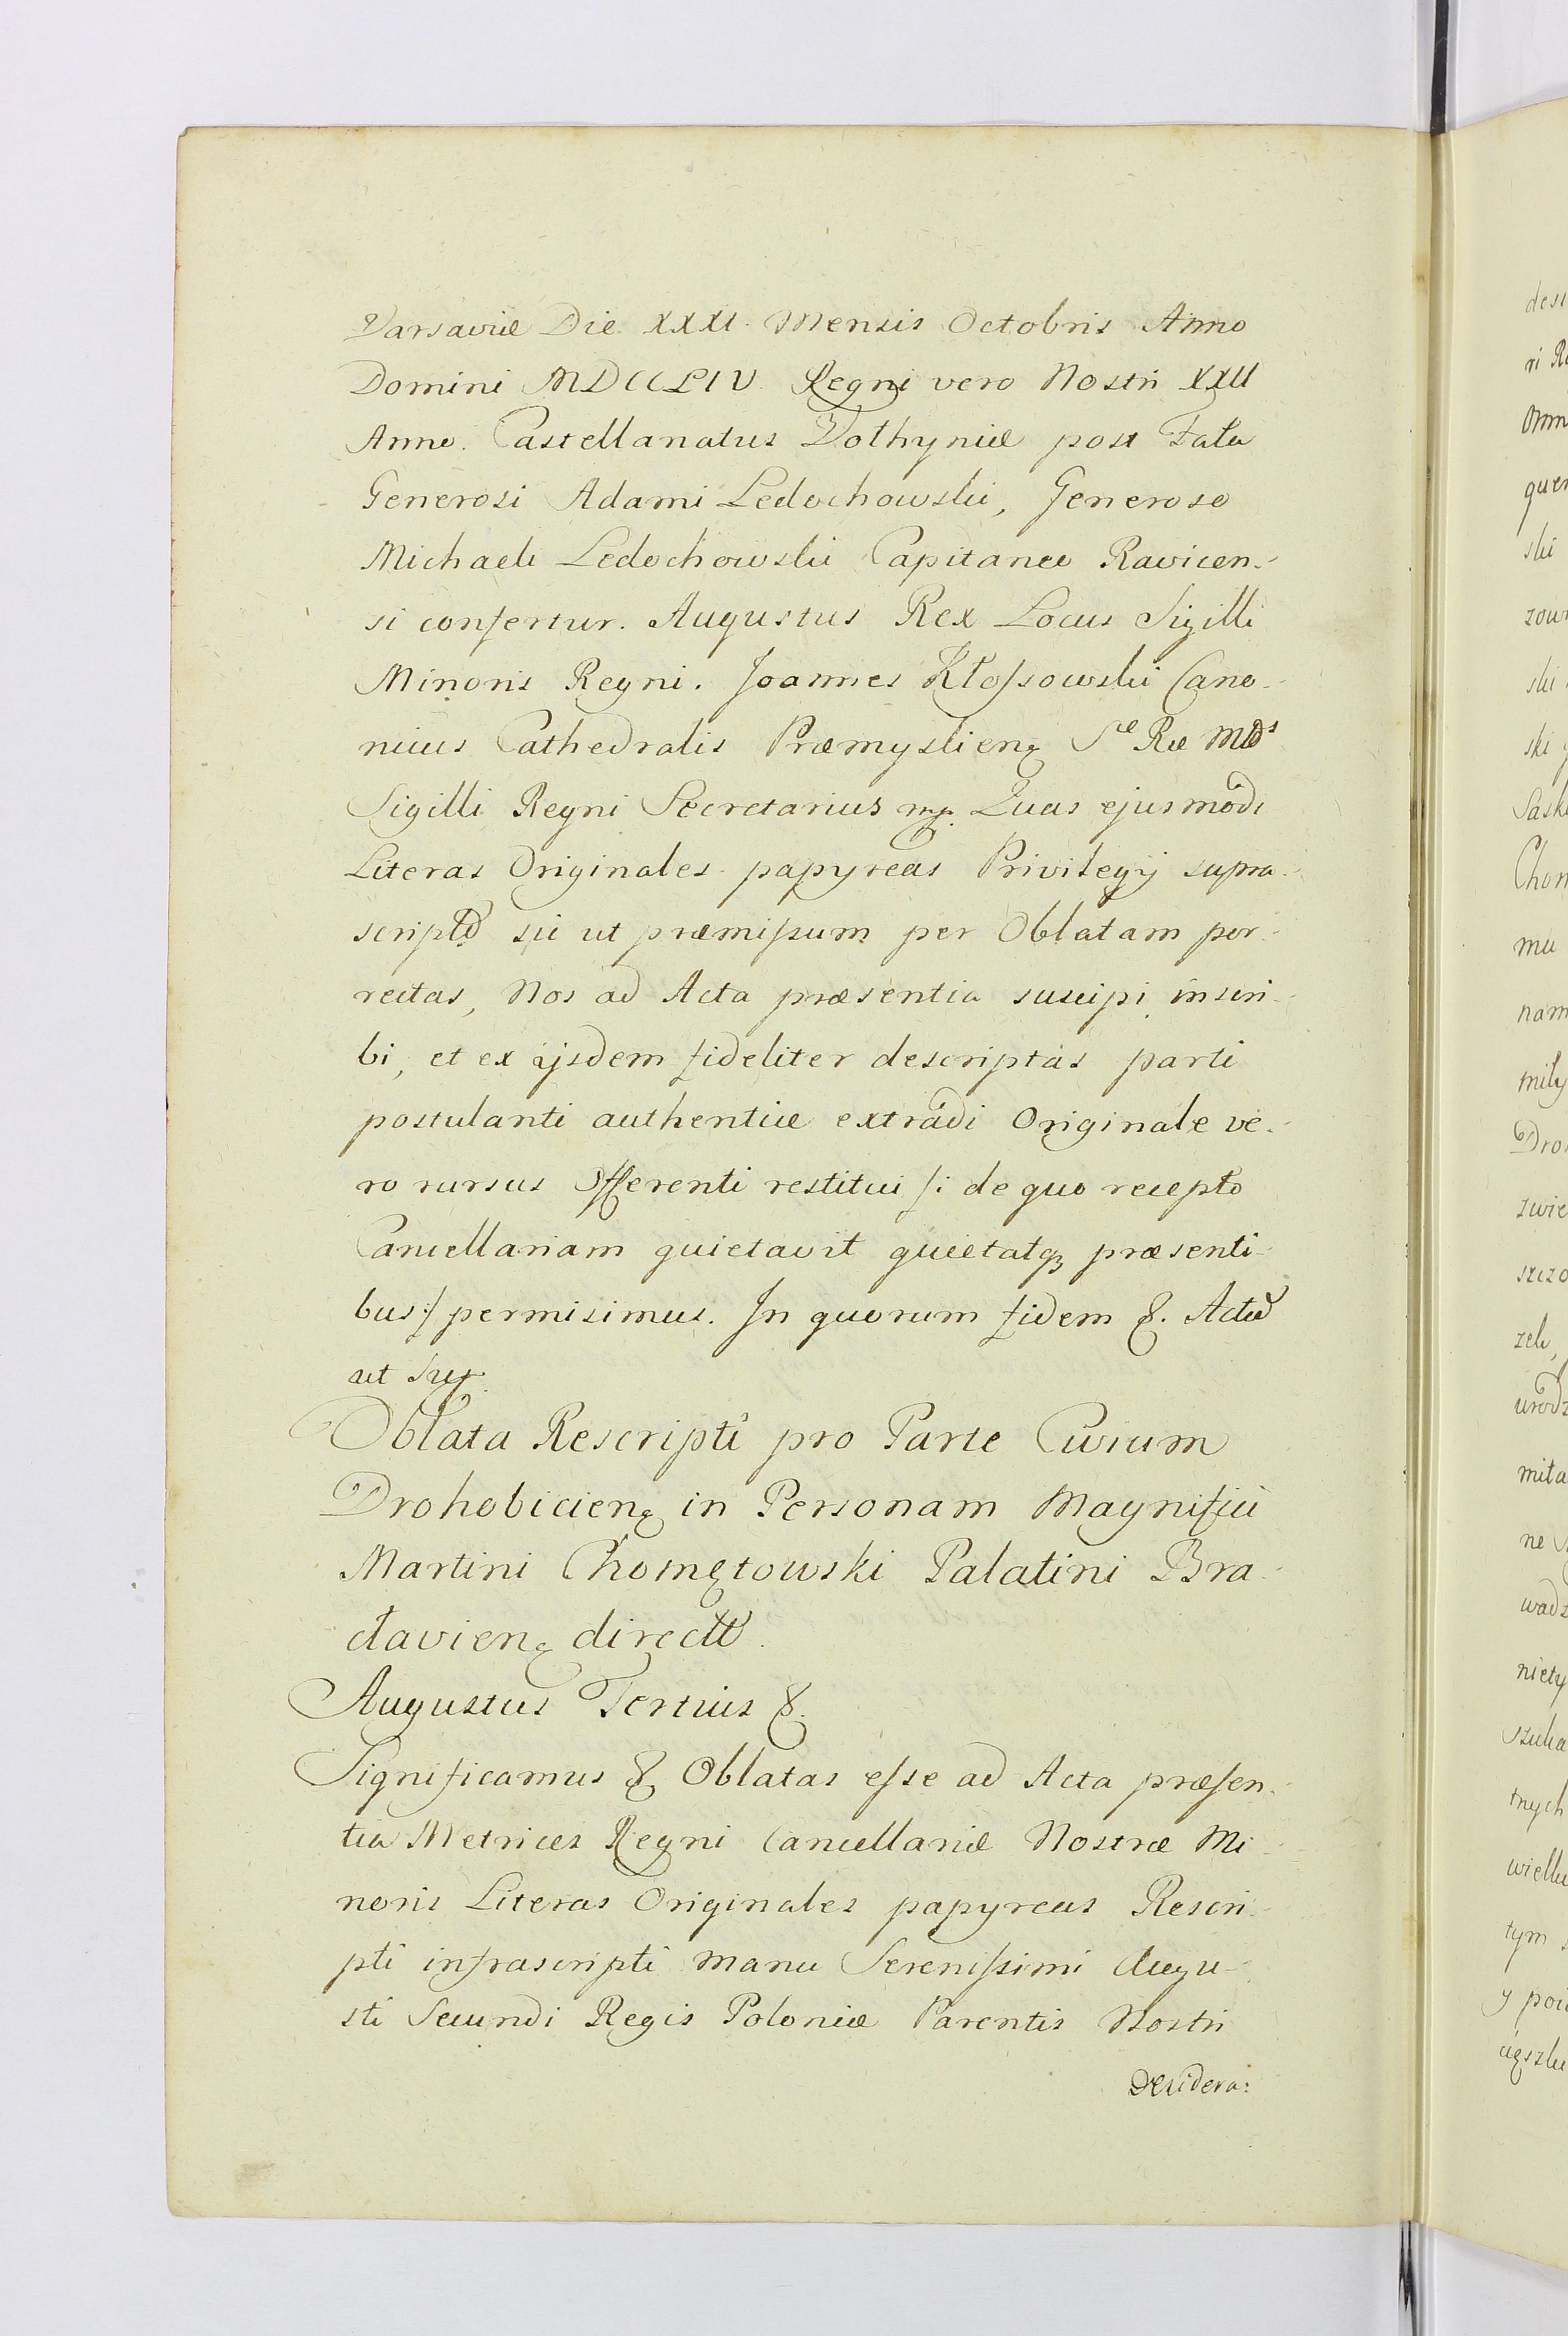 Varsaviæ Die XXXI. Mensis Octobris Anno
Domini MDCCLIV. Regni vero Nostri XXII
Anno. Castellanatus Volhyniæ post Fata
Generosi Adami Ledochowski, Generoso
Michaeli Ledochowski Capitaneo Ravicen-
si confertur. Augustus Rex Locus Sigilli
Minoris Regni. Joannes Kłoſsowski Cano-
nicus Cathedralis Præmyslien Sæ Ræ Mtis
Sigilli Regni Secretarius mp. Quas ejusmodi
Literas Originales papyreas Privilegij supra-
scripti sic ut præmiſsum per Oblatam por-
rectas, Nos ad Acta præsentia suscipi, inscri-
bi, et ex ijsdem fideliter descriptas parti
postulanti authentice extradi Originale ve-
ro rursus Offerenti restitui /: de quo recepto
Cancellariam quietavit quietatq præsenti-
bus :/ permisimus. In quorum fidem &. Actũ
ut Sup.
Oblata Rescripti pro Parte Civium
Drohobicien in Personam Magnifici
Martini Chomętowski Palatini Bra-
clavien directi.
Augustus Tertius &.
Significamus & Oblatas eſse ad Acta præſen-
tia Metrices Regni Cancellariæ Nostræ Mi-
noris Literas Originales papyreas Rescri-
pti infrascripti manu Sereniſsimi Augu-
sti Secundi Regis Poloniæ Parentis Nostri
Desidera: